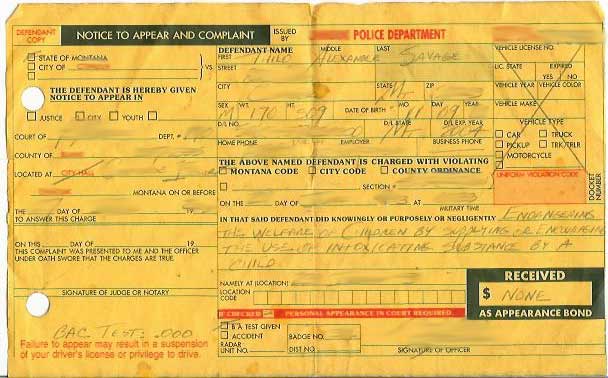 DEFENDANT COPY
NOTICE TO APPEAR AND COMPLAINT
ISSUED BY
POLICE DEPARTMENT
STATE OF MONTANA
CITY OF
VS.
DEFENDANT NAME
FIRST MIDDLE LAST
Alexander Savage
STREET
CITY STATE ZIP
MT
SEX WT. HT. DATE OF BIRTH MO DAY YEAR
M 170 509
D/L NO. D/L STATE D/L EXP. YEAR
MT 2004
HOME PHONE EMPLOYER BUSINESS PHONE
VEHICLE LICENSE NO.
LIC. STATE EXPIRED
YES NO
VEHICLE YEAR VEHICLE COLOR
VEHICLE MAKE
VEHICLE TYPE
CAR TRUCK
PICKUP TRK/TRLR
MOTORCYCLE
UNIFORM VIOLATION CODE
DOCKET NUMBER
THE DEFENDANT IS HEREBY GIVEN
NOTICE TO APPEAR IN
JUSTICE CITY YOUTH
COURT OF DEPT. #
COUNTY OF
LOCATED AT CITY HALL
MONTANA ON OR BEFORE
THE DAY OF 19
TO ANSWER THIS CHARGE
ON THIS DAY OF 19
THIS COMPLAINT WAS PRESENTED TO ME AND THE OFFICER
UNDER OATH SWORE THAT THE CHARGES ARE TRUE.
SIGNATURE OF JUDGE OR NOTARY
BAC TEST: .000
Failure to appear may result in a suspension
of your driver's license or privilege to drive.
THE ABOVE NAMED DEFENDANT IS CHARGED WITH VIOLATING
MONTANA CODE CITY CODE COUNTY ORDINANCE
SECTION #
ON THE DAY OF AT
MILITARY TIME
IN THAT SAID DEFENDANT DID KNOWINGLY OR PURPOSELY OR NEGLIGENTLY ENDANGERING
THE WELFARE OF CHILDREN BY SUPPLYING OR ENCOURAGING
THE USE OF INTOXICATING SUBSTANCE BY A
CHILD
NAMELY AT (LOCATION)
LOCATION CODE
IF CHECKED PERSONAL APPEARANCE IN COURT REQUIRED.
B A TEST GIVEN
ACCIDENT BADGE NO
RADAR
UNIT NO. DIST NO.
SIGNATURE OF OFFICER
RECEIVED
$ NONE
AS APPEARANCE BOND